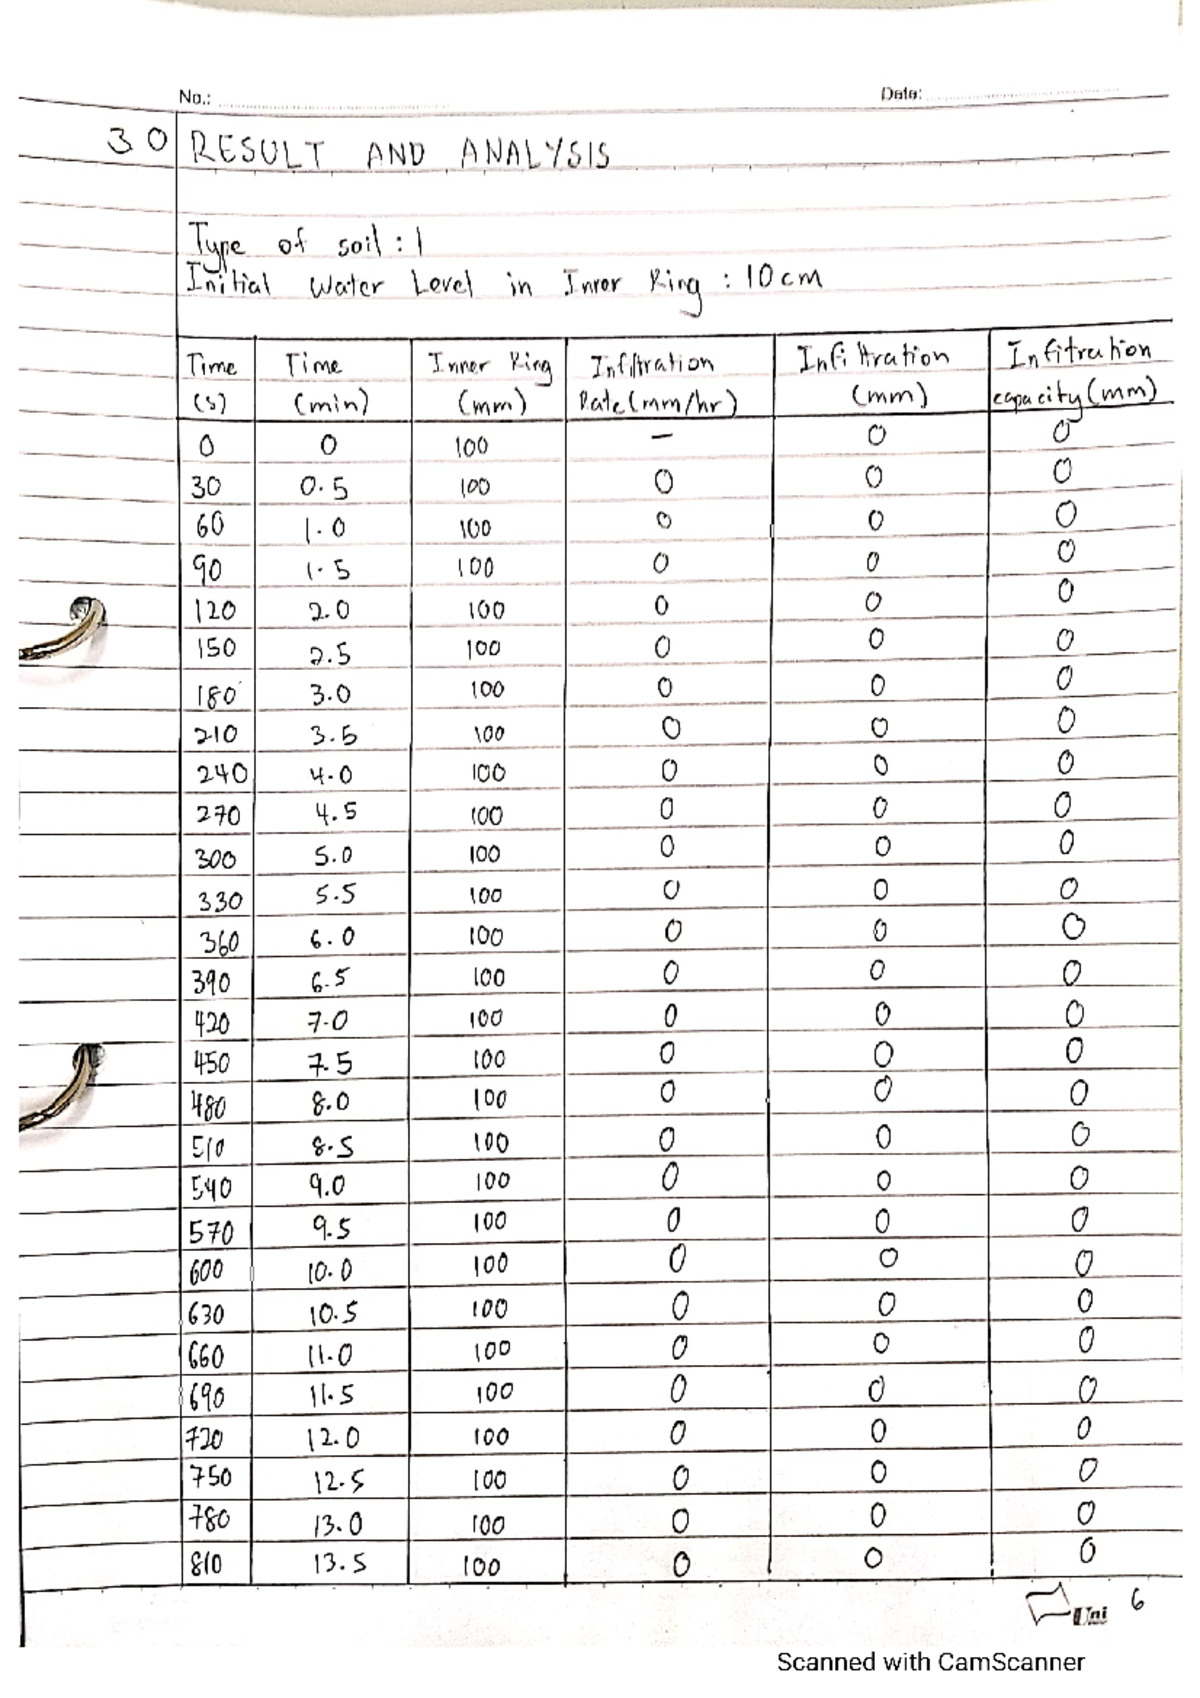 No.:
Date:
30 RESULT AND ANALYSIS
Type of soil : 1
Initial Water Level in Inner Ring : 10 cm
Time (s) Time (min) Inner Ring (mm) Infiltration Rate (mm/hr) Infiltration (mm) Infitration capacity (mm)
0 0 100 – 0 0
30 0.5 100 0 0 0
60 1.0 100 0 0 0
90 1.5 100 0 0 0
120 2.0 100 0 0 0
150 2.5 100 0 0 0
180 3.0 100 0 0 0
210 3.5 100 0 0 0
240 4.0 100 0 0 0
270 4.5 100 0 0 0
300 5.0 100 0 0 0
330 5.5 100 0 0 0
360 6.0 100 0 0 0
390 6.5 100 0 0 0
420 7.0 100 0 0 0
450 7.5 100 0 0 0
480 8.0 100 0 0 0
510 8.5 100 0 0 0
540 9.0 100 0 0 0
570 9.5 100 0 0 0
600 10.0 100 0 0 0
630 10.5 100 0 0 0
660 11.0 100 0 0 0
690 11.5 100 0 0 0
720 12.0 100 0 0 0
750 12.5 100 0 0 0
780 13.0 100 0 0 0
810 13.5 100 0 0 0
Uni 6
Scanned with CamScanner